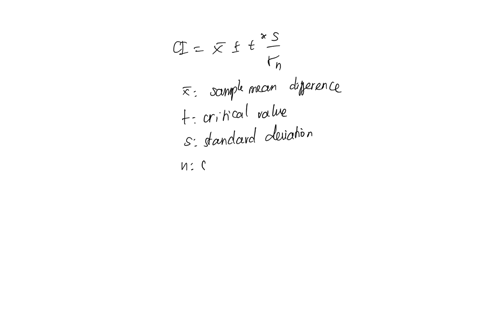 CI = x̄ ± t* s/√n
x̄: sample mean difference
t: critical value
s: standard deviation
n: (